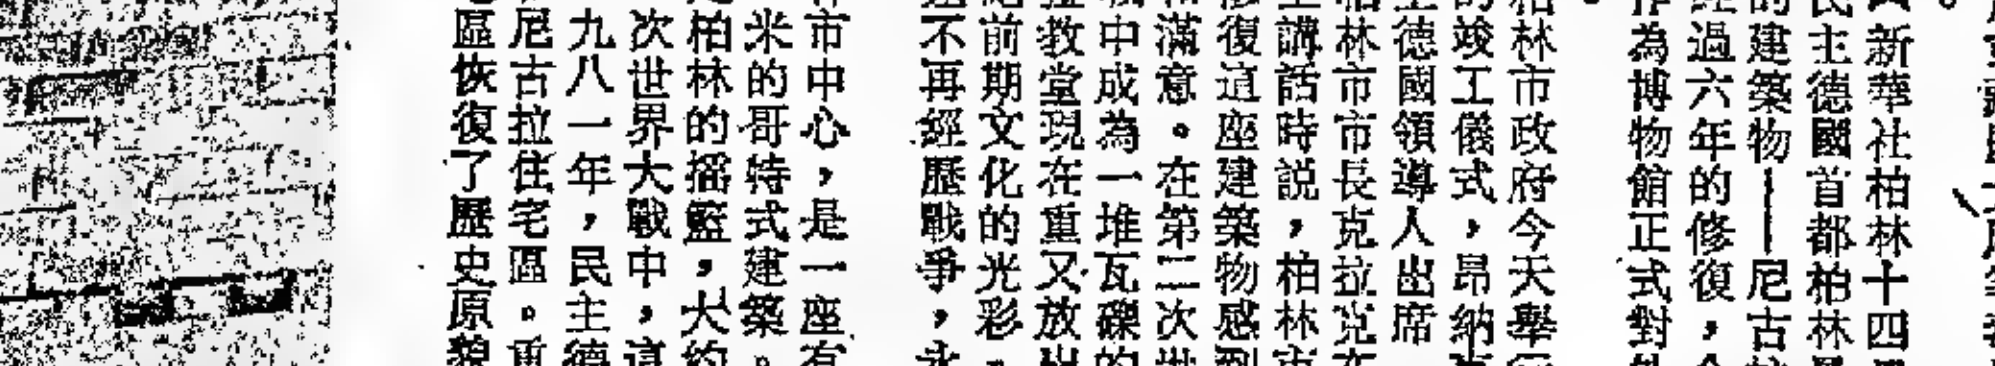 新華社柏林十四
民主德國首都柏林
的建築物——尼古
經過六年的修復，
作為博物館正式對
柏林市政府今天舉
的竣工儀式，昂納
主德國領導人出席
柏林市市長克拉克在
講話時説，柏林市
修復這座建築物感到
滿意。在第二次世
中成為一堆瓦礫的
拉教堂現在重又放出
前期文化的光彩。
不再經歷戰爭，永
市中心，是一座有
米的哥特式建築。
柏林的搖籃，大約
次世界大戰中，這
九八一年，民主德
尼古拉住宅區。重
區恢復了歷史原貌